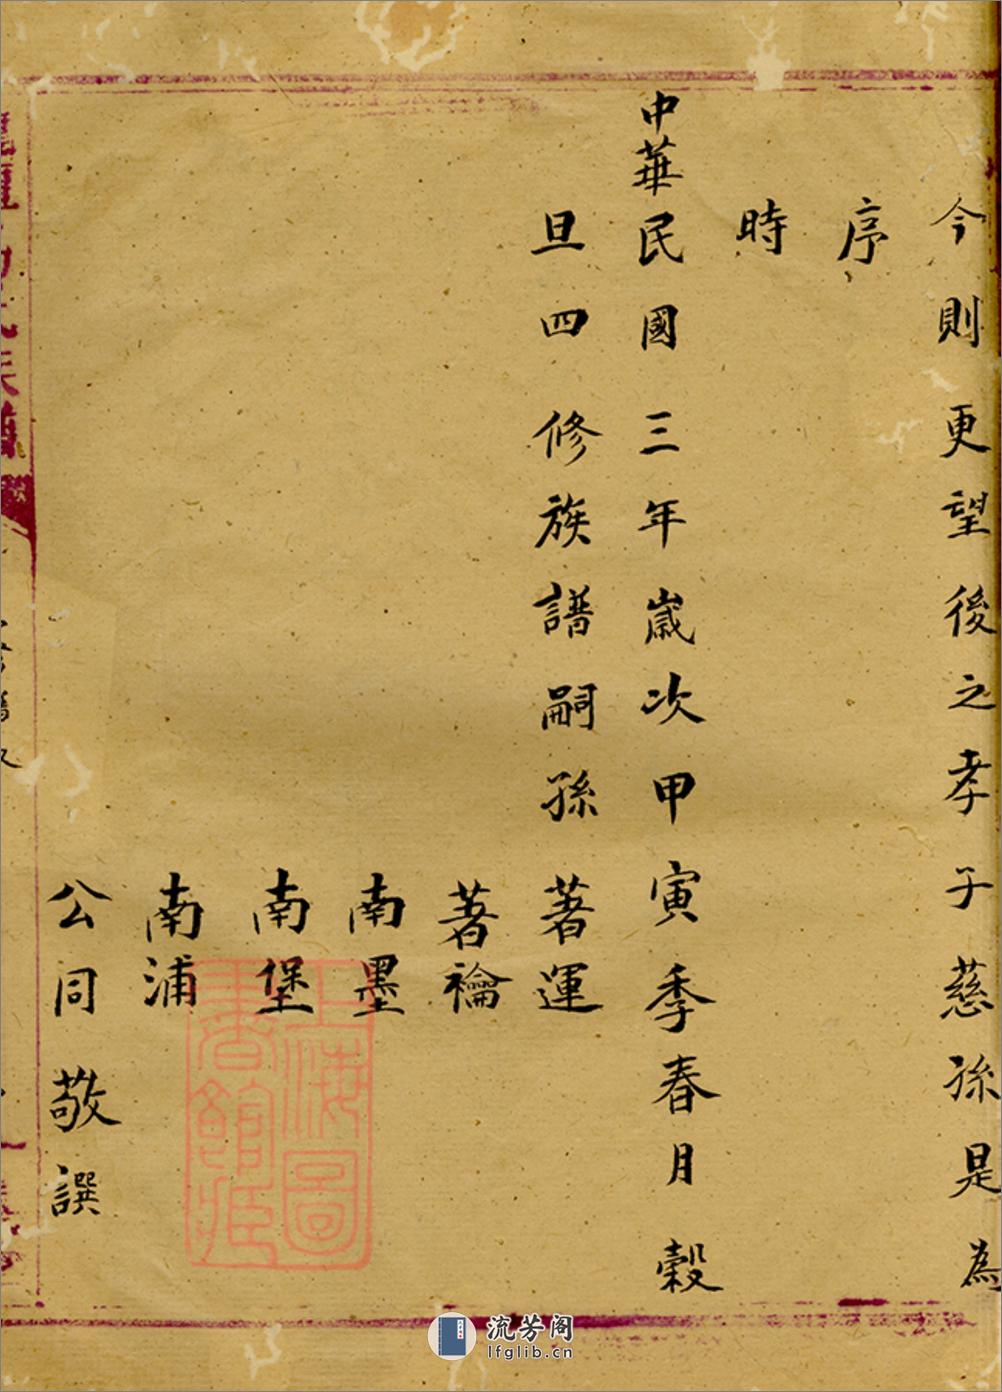 今則更望後之孝子慈孫是為
序
時
中華民國三年歲次甲寅季春月穀
旦四修族譜嗣孫著運
著禴
南墨
南堡
南浦
公同敬譔
上海圖
書館藏
流芳阁
lfglib.cn